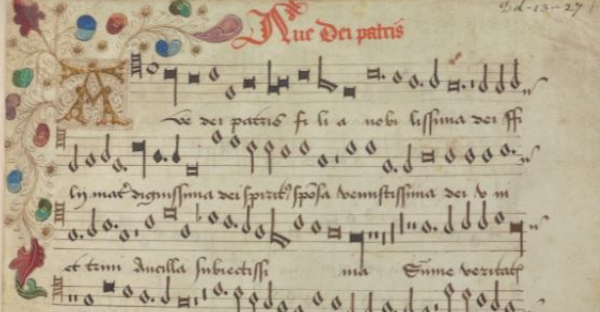 Dd-13-27
Aue Dei patris
Aue dei patris fi li a nobi lissima dei ffi
lij mat᷑ dignissima dei spirit9 spōsa venustissima dei v ni
et trini Ancilla subiectissi ma Sūme veritatꝭ